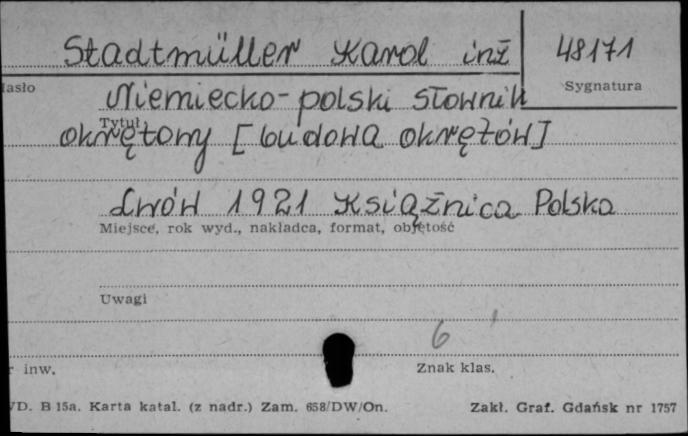 Stadtmüller Karol inż
48171
Hasło
Sygnatura
Niemiecko-polski słownik
Tytuł
okrętowy [budowa okrętów]
Lwów 1921 Książnica Polska
Miejsce, rok wyd., nakładca, format, objętość
Uwagi
6
r inw.
Znak klas.
/D. B 15a. Karta katal. (z nadr.) Zam. 658/DW/On.
Zakł. Graf. Gdańsk nr 1757